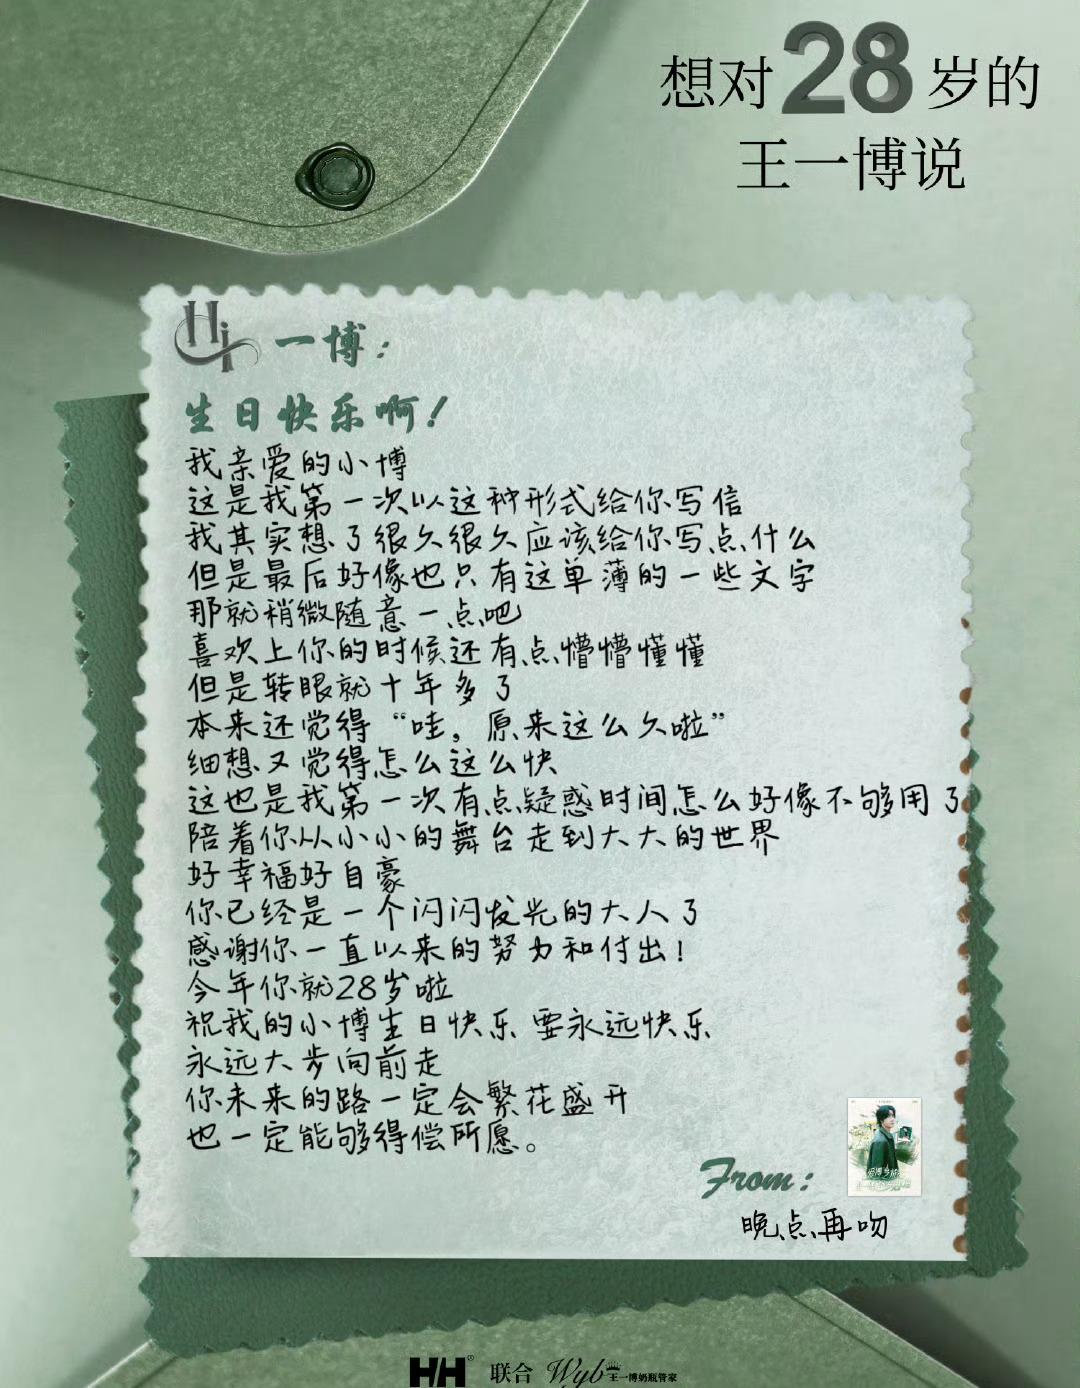 想对28岁的
王一博说
Hi 一博：
生日快乐啊！
我亲爱的小博
这是我第一次以这种形式给你写信
我其实想了很久很久应该给你写点什么
但是最后好像也只有这单薄的一些文字
那就稍微随意一点吧
喜欢上你的时候还有点懵懵懂懂
但是转眼就十年多了
本来还觉得“哇，原来这么久啦”
细想又觉得怎么这么快
这也是我第一次有点疑惑时间怎么好像不够用了
陪着你从小小的舞台走到大大的世界
好幸福好自豪
你已经是一个闪闪发光的大人了
感谢你一直以来的努力和付出！
今年你就28岁啦
祝我的小博生日快乐 要永远快乐
永远大步向前走
你未来的路一定会繁花盛开
也一定能够得偿所愿。
From：
晚点再吻
HH® 联合 Wyb王一博奶瓶管家